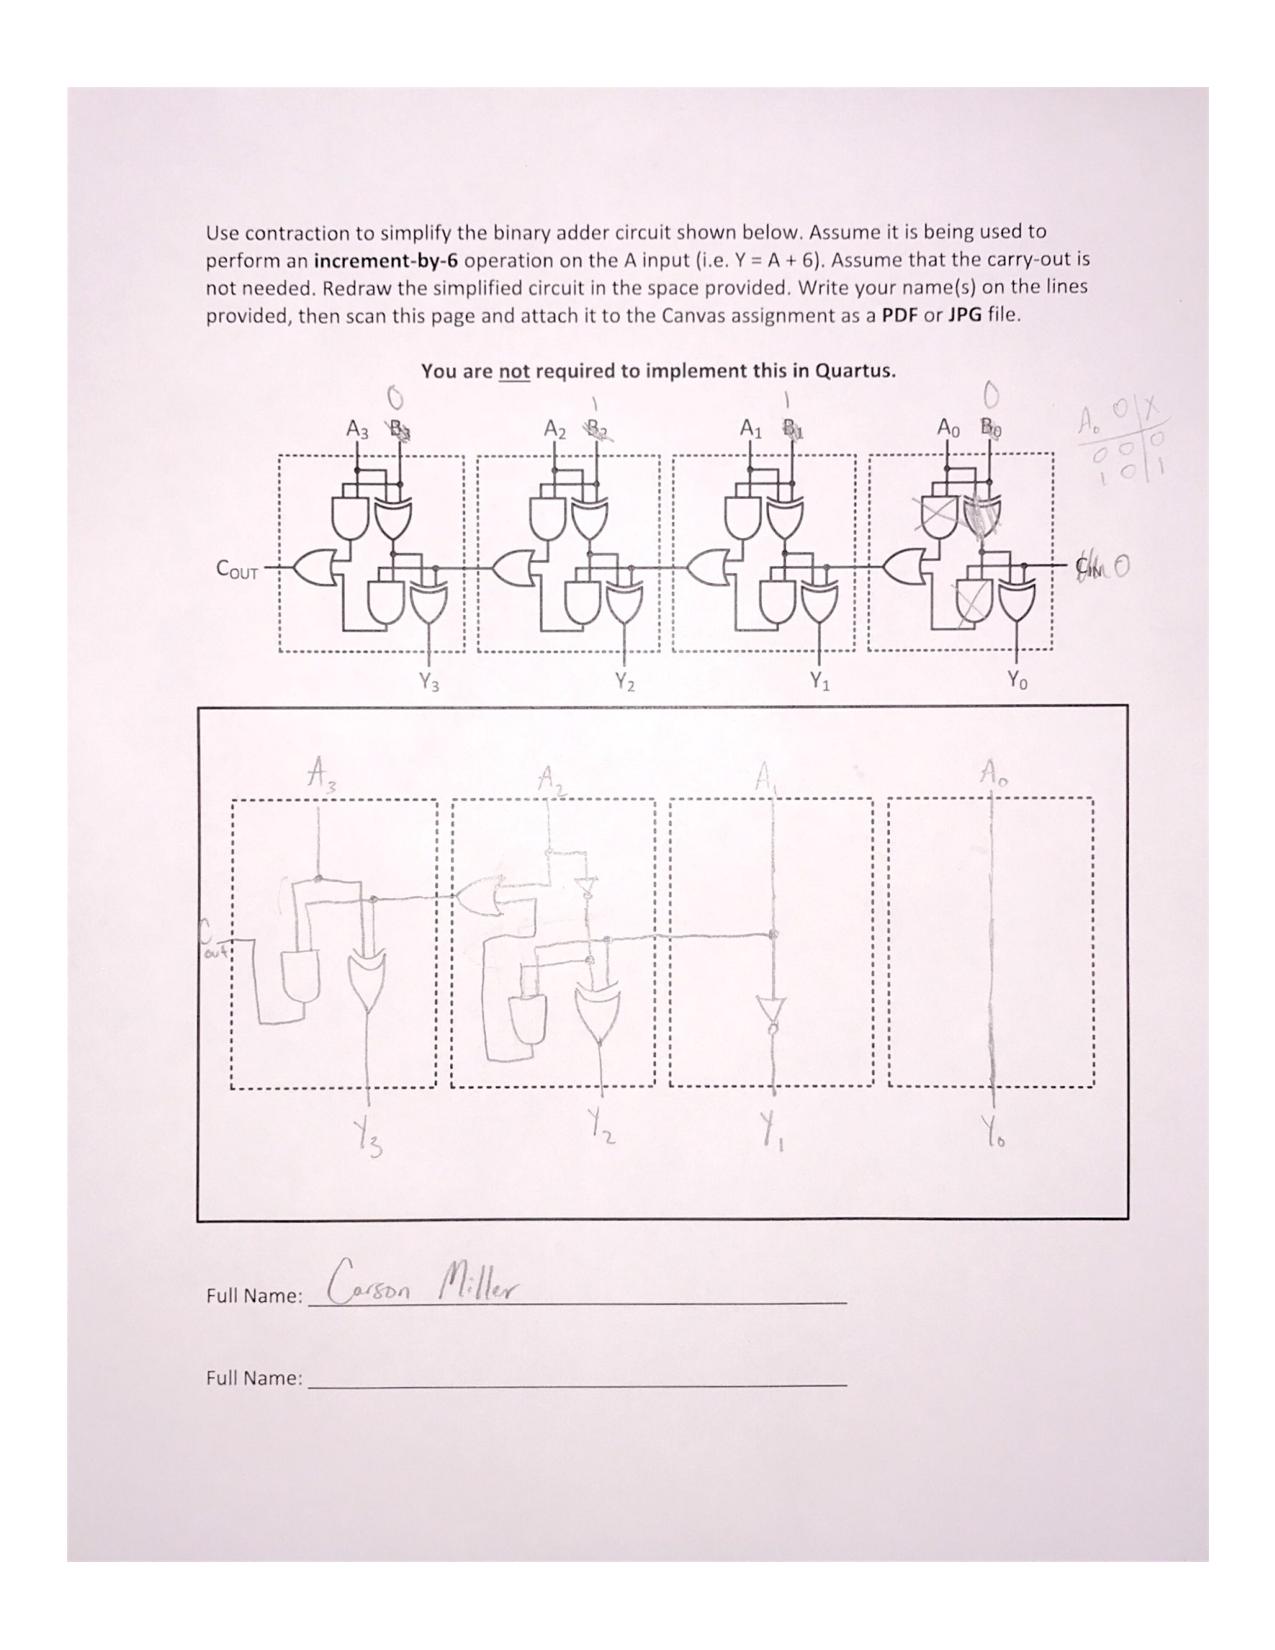 Use contraction to simplify the binary adder circuit shown below. Assume it is being used to
perform an increment-by-6 operation on the A input (i.e. Y = A + 6). Assume that the carry-out is
not needed. Redraw the simplified circuit in the space provided. Write your name(s) on the lines
provided, then scan this page and attach it to the Canvas assignment as a PDF or JPG file.
You are not required to implement this in Quartus.
0 1 1 0
A3 B3 A2 B2 A1 B1 A0 B0
A0 0 X
0 0 0
1 0 1
COUT CIN 0
Y3 Y2 Y1 Y0
A3 A2 A1 A0
Cout
Y3 Y2 Y1 Y0
Full Name: Carson Miller
Full Name: